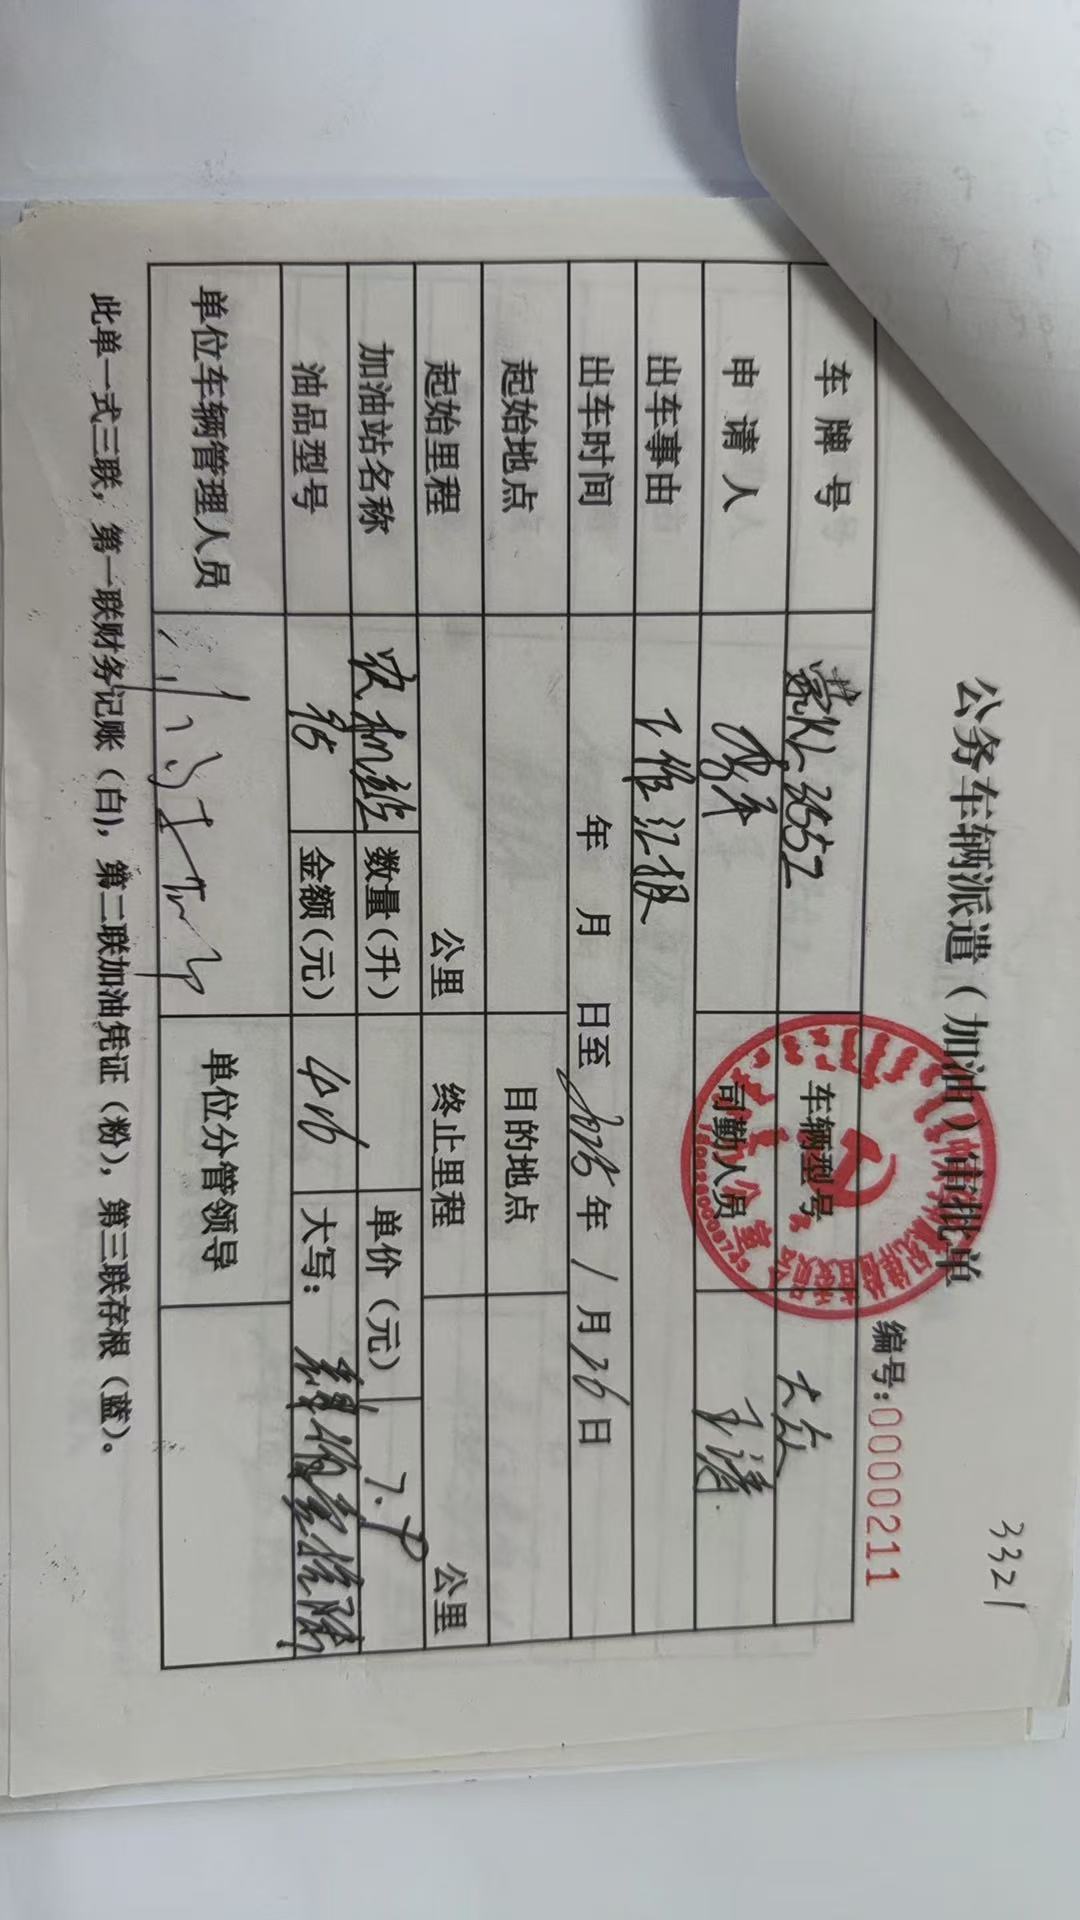 3321
公务车辆派遣（加油）审批单
编号:0000211
车牌号 蒙KL3552 车辆型号 大众
申请人 司勤人员 王涛
出车事由 工作汇报
出车时间 年 月 日至 2026年1月26日
起始地点 目的地点
起始里程 公里 终止里程 公里
加油站名称 农机 数量(升) 单价（元） 7.9
油品型号 95 金额(元) 416 大写：
单位车辆管理人员 单位分管领导
此单一式三联，第一联财务记账（白），第二联加油凭证（粉），第三联存根（蓝）。